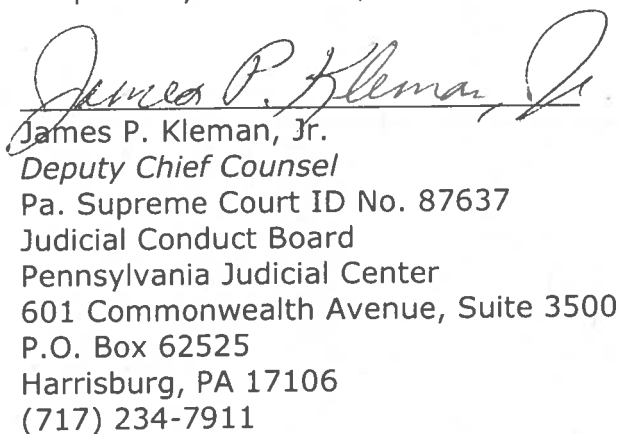 James P. Kleman, Jr
James P. Kleman, Jr.
Deputy Chief Counsel
Pa. Supreme Court ID No. 87637
Judicial Conduct Board
Pennsylvania Judicial Center
601 Commonwealth Avenue, Suite 3500
P.O. Box 62525
Harrisburg, PA 17106
(717) 234-7911